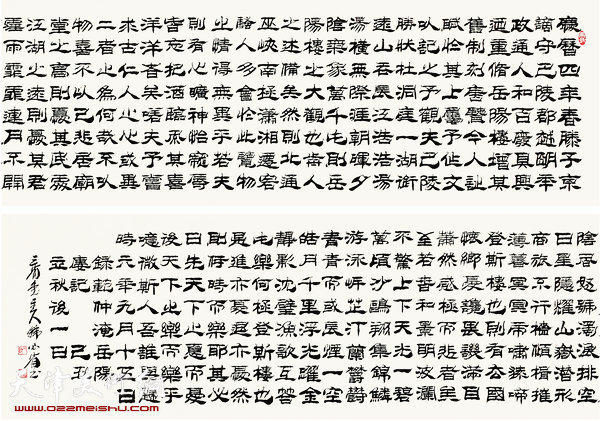 慶曆四年春滕子京
謫守巴陵郡越明年
政通人和百廢具興
迺重脩岳陽樓增其
舊制刻唐賢今人詩
賦於其上屬予作文
以記之予觀夫巴陵
勝狀在洞庭一湖銜
遠山吞長江浩浩湯
湯橫無際涯朝暉夕
陰氣象萬千此則岳
陽樓之大觀也前人
之述備矣然則北通
巫峽南極瀟湘遷客
騷人多會於此覽物
之情得無異乎若夫
則有心曠神怡寵辱
皆忘把酒臨風其喜
洋洋者矣嗟夫予嘗
求古仁人之心或異
二者之為何哉不以
物喜不以己悲居廟
堂之高則憂其民處
江湖之遠則憂其君
霪雨霏霏連月不開
陰風怒號濁浪排空
日星隱耀山嶽潛形
商旅不行檣傾楫摧
薄暮冥冥虎嘯猿啼
登斯樓也則有去國
懷鄉憂讒畏譏滿目
蕭然感極而悲者矣
至若春和景明波瀾
不驚上下天光一碧
萬頃沙鷗翔集錦鱗
游泳岸芷汀蘭鬱鬱
青青而或長煙一空
皓月千里浮光躍金
靜影沈璧漁歌互答
此樂何極登斯樓也
是進亦憂退亦憂然
則何時而樂耶其必
曰先天下之憂而憂
後天下之樂而樂乎
噫微斯人吾誰與歸
時六年九月十五日
錄範仲淹岳陽
樓記 己丑
立秋後一日
www.022meishu.com